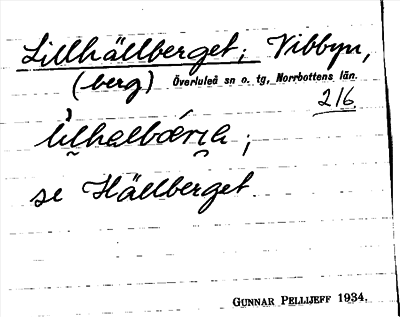 Lillhällberget; Vibbyn,
(berg) Överluleå sn o. tg, Norrbottens län.
216
se Hällberget.
GUNNAR PELLIJEFF 1934.